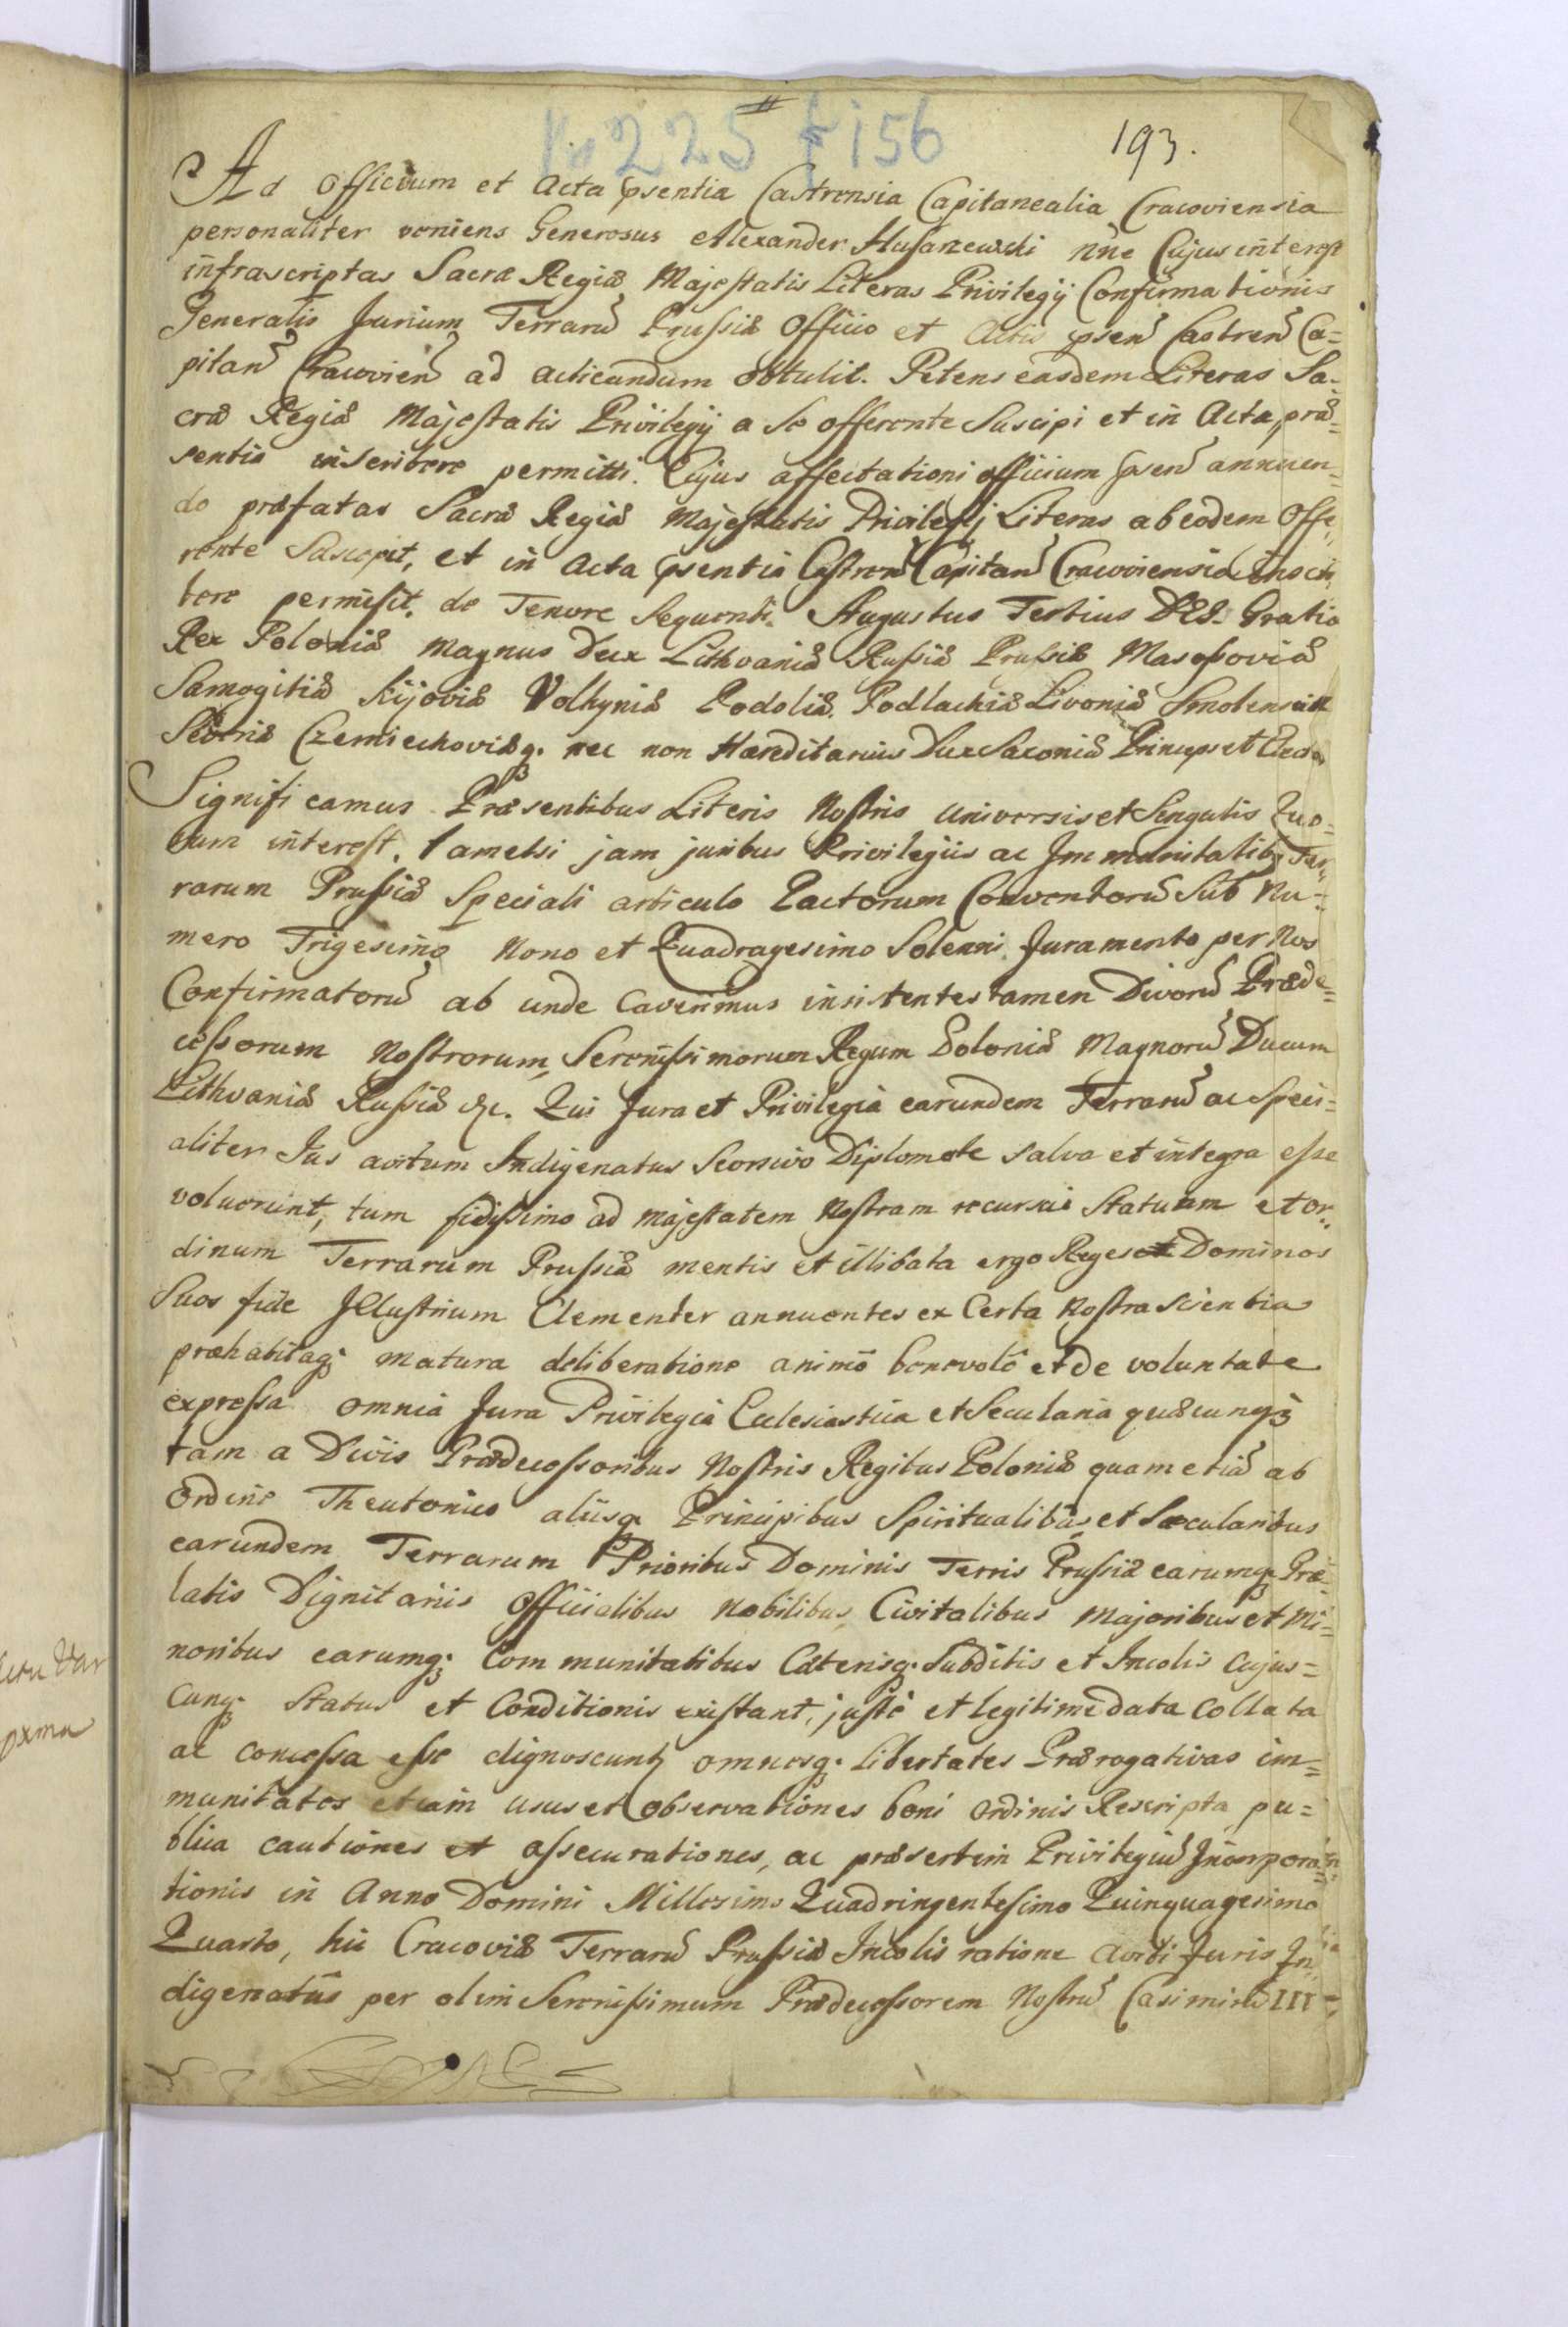 No 225 f 156
193.
Ad Officium et Acta psentia Castrensia Capitanealia Cracoviensia
personaliter veniens Generosus Alexander Husarzewski nne Cujus interest
infrascriptas Sacræ Regiæ Majestatis Literas Privilegij Confirmationis
Generalis Jurium Terrarũ Prussiæ Officio et Actis psen̄ Castren̄ Ca=
pitan̄ Cracovien̄ ad acticandum obtulit. Petens easdem Literas Sa=
cræ Regiæ Majestatis Privilegij a se offerente Suscipi et in Acta præ=
sentia inscribere permitti. Cujus affectationi officium psen̄ annuen=
do præfatas Sacræ Regiæ Majestatis Privilegij Literas ab eodem Offe=
rente Suscepit, et in Acta psentia Castren̄ Capitan̄ Cracoviensia Inscri
bere permisit. de Tenore Sequenti. Augustus Tertius DEI. Gratia
Rex Poloniæ Magnus Dux Lithvaniæ Russiæ Prussiæ Masoviæ
Samogitiæ Kijoviæ Volhyniæ Podoliæ. Podlachiæ Livoniæ Smolensciæ
Severiæ Czerniechoviæq. nec non Hæreditarius Dux Saxoniæ Princeps et Elector
Significamus Præsentibus Literis Nostris universis et Singulis Quo=
rum interest. Tametsi jam juribus Privilegiis ac Immunitatibq Ter=
rarum Prussiæ Speciali articulo Pactorum Conventorũ Sub Nu=
mero Trigesimo Nono et Quadragesimo Solenni Juramento per Nos
Confirmatorũ ab unde caverimus insistentes tamen Divorũ Præde=
cessorum Nostrorum, Serenissimorum Regum Poloniæ Magnorũ Ducum
Lithvaniæ Russiæ &c. Qui Jura et Privilegia earundem Terrarũ ac Speci=
aliter Jus avitum Indigenatus Seorsivo Diplomate salva et integra esse
voluerunt, tum fidissimo ad Majestatem Nostram recursui Statuum et or=
dinum Terrarum Prussiæ mentis et illibata ergo Reges et Dominos
Suos fide Illustrium Clementer annuentes ex Certa Nostra scientia
præhabitaq; matura deliberatione animō benevolō et de voluntate
expressa omnia Jura Privilegia Ecclesiastica et Secularia quæcunq3
tam a Divis Prædecessoribus Nostris Regibus Poloniæ quam etiā ab
Ordine Theutonico aliisq. Principibus Spiritualibus, et Sæcularibus
earundem Terrarum Prioribus Dominis Terris Prussiæ earumq. Præ=
latis Dignitariis Officialibus Nobilibus Civitatibus Majoribus et Mi=
noribus earumq; Communitatibus Cæterisq. Subditis et Incolis cujus=
cunq. Status et Conditionis existant, justè et legitimè data collata
ac concessa esse dignoscunt omnesq. Libertates Prærogativas im=
munitates etiam usus et observationes boni ordinis Rescripta pu=
blica cautiones et assecurationes, ac præsertim Privilegiũ Incorpora=
tionis in Anno Domini Millesimo Quadringentesimo Quinquagesimo
Quarto, hic Cracoviæ Terrarũ Prussiæ Incolis ratione aviti Juris In=
digenatūs per olim Serenissimum Prædecessorem Nostrũ Casimirũ III